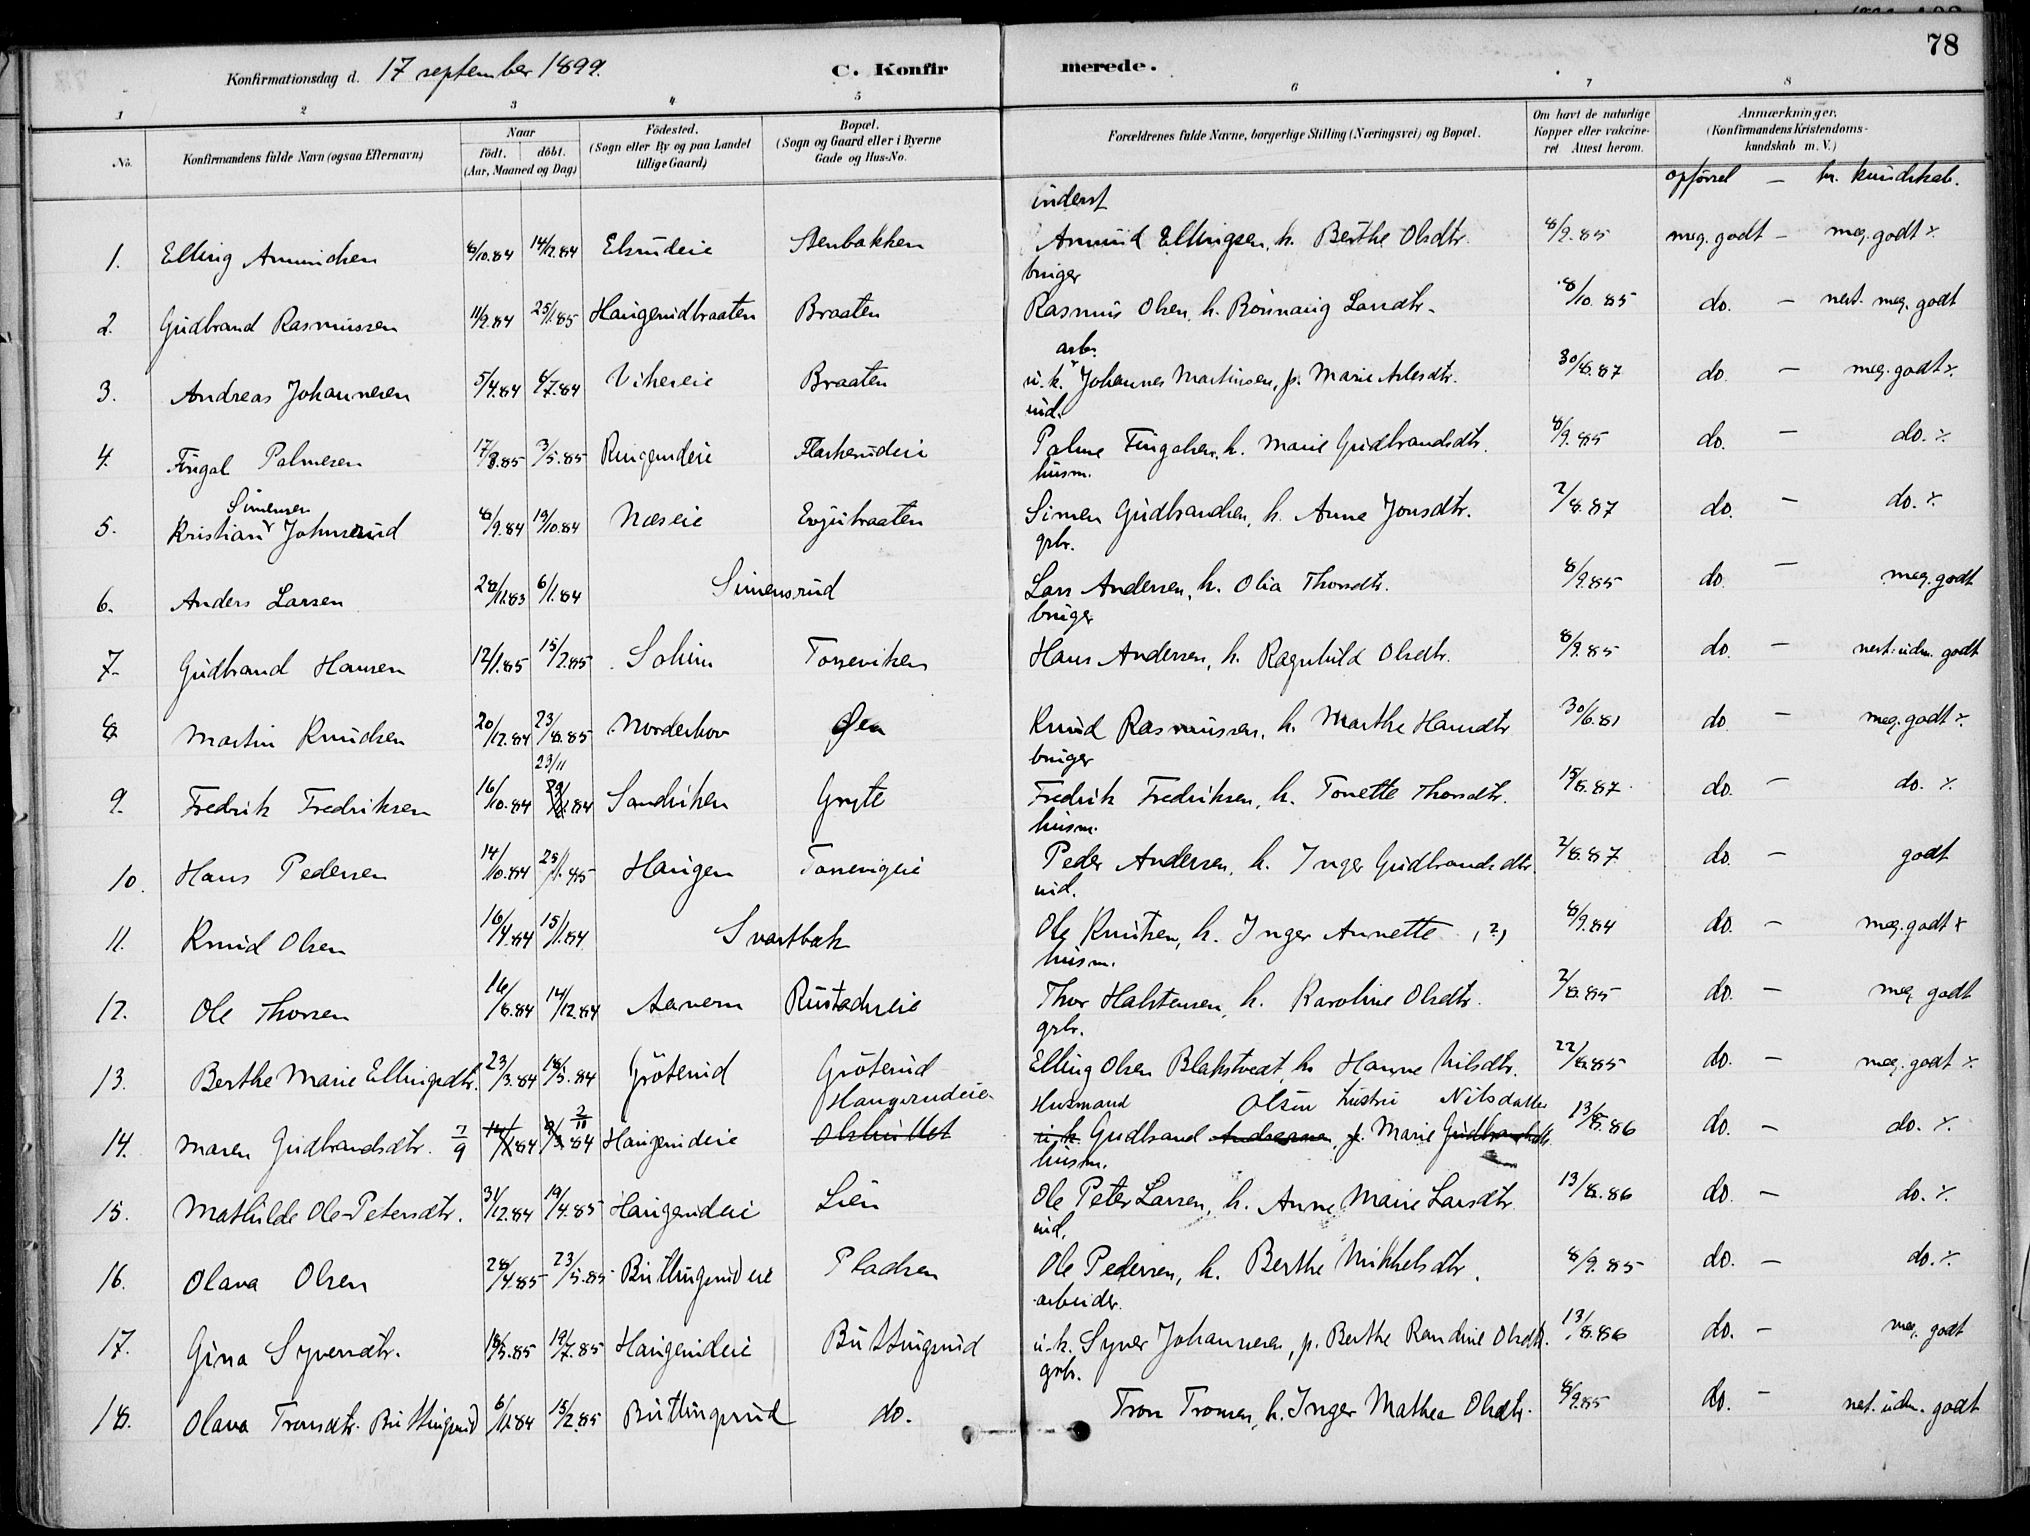 78
Konfirmationsdag d. 17 september 1899. C. Konfirmerede.
1 2 3 4 5 6 7 8
No. Konfirmandens fulde Navn (ogsaa Efternavn) Naar födt. döbt. (Aar, Maaned og Dag) Födested. (Sogn eller By og paa Landet tillige Gaard) Bopæl. (Sogn og Gaard eller i Byerne Gade og Hus-No.) Forældrenes fulde Navne, borgerlige Stilling (Næringsvei) og Bopæl. Om havt de naturlige Kopper eller vakcineret Attest herom. Anmærkninger. (Konfirmandens Kristendomskundskab m. V.)
opförsel – kr. kundskab.
inderst
1. Elling Amundsen 8/10.84 14/12.84 Elsrudeie Stenbakken Amund Ellingsen, h. Berthe Olsdtr. 8/9.85 meg. godt – meg. godt
bruger
2. Gudbrand Rasmussen 11/9.84 25/1.85 Haugerudbraaten Braaten Rasmus Olsen, h. Rönnaug Larsdtr. 8/10.85 do. – nest. meg. godt
arb.
3. Andreas Johannesen 5/4.84 6/7.84 Vikereie Braaten u.k. Johannes Martinsen, p. Marie Arlesdtr. 30/6.87 do – meg. godt
ind.
4. Fingal Palmesen 17/3.85 3/5.85 Ringerudeie Flaskerudeie Palme Fingalsen, h. Marie Gudbrandsdtr. 8/9.85 do. – do.
husm.
Simensen
5. Kristian Johnsrud 8/9.84 19/10.84 Næseie Evjubraaten Simen Gudbrandsen, h. Anne Jonsdtr. 2/8.87 do. – do.
grbr.
6. Anders Larsen 28/11.83 6/1.84 Simensrud Lars Andersen, h. Olia Thorsdtr. 8/9.85 do – meg. godt
bruger
7. Gudbrand Hansen 12/1.85 15/2.85 Solum Torseviken Hans Andersen, h. Ragnhild Olsdtr. 8/9.85 do. – nest. udm. godt
8 Martin Knudsen 20/12.84 23/8.85 Norderhov Öen Knud Rasmussen, h. Marthe Hansdtr 30/6.81 do – meg. godt
bruger
23/11
9. Fredrik Fredriksen 16/10.84 Sandviken Gryte Fredrik Fredriksen, h. Tonette Thorsdtr. 15/8.87 do. – do.
husm.
10. Hans Pedersen 14/10.84 25/1.85 Haugen Torsevigeie Peder Andersen, h. Inger Gudbrandsdtr. 2/8.87 do. – godt
ind.
11. Knud Olsen 16/4.84 15/1.84 Svartbak Ole Knutsen, h. Inger Annette (?) 8/9.84 do. – meg. godt
husm.
12. Ole Thorsen 16/8.84 14/12.84 Aavern Rustadeie Thor Halstensen, h. Karoline Olsdtr. 2/8.85 do. – meg. godt
grbr.
13. Berthe Marie Ellingsdtr. 23/3.84 18/5.84 Gröterud Gröterud Elling Olsen Blakstvedt, h. Hanne Nilsdtr. 22/8.85 do. – meg. godt
Haugerudeie Husmand Olsen hustru Nilsdatter
14. Maren Gudbrandsdtr. 7/9 84 2/11 84 Haugerudeie Olshullet u.k Gudbrand Andersen, p. Marie Gudbrandsdtr. 13/8.86 do. – do.
husm.
15. Mathilde Ole-Petersdtr. 31/12.84 19/4.85 Haugerudeie Lien Ole Peter Larsen, h. Anne Marie Larsdtr. 13/8.86 do. – do.
ind.
16. Olava Olsen 28/4.85 23/5.85 Buttingsrudeie Pladsen Ole Pedersen, h. Berthe Mikkelsdtr. 8/9.85 do. – do.
arbeider.
17. Gina Syversdtr. 18/3.85 19/7.85 Haugerudeie Buttingsrud u.k. Syver Johannesen, p. Berthe Randine Olsdtr. 13/8.86 do. – meg. godt
grbr.
18. Olava Tronsdtr. Buttingsrud 6/11.84 15/2.85 Buttingsrud do. Tron Tronsen, h. Inger Mathea Olsdtr. 8/9.85 do. – nest. udm. godt